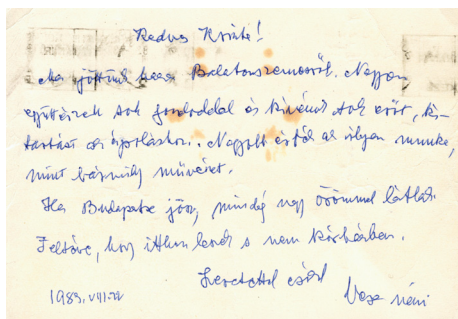 Kedves Kriszta!
Ma jöttünk haza Balatonszemesről. Nagyon
együttérzek sok gondoddal és kívánok sok erőt, ki-
tartást az ápoláshoz. Nagyobb az ilyen munka,
mint bármely művészet.
Ha Budapestre jössz, mindig nagy örömmel látlak.
Feltéve, hogy itthon leszek s nem kórházban.
Szeretettel csókol
1983. VIII. 22
néni